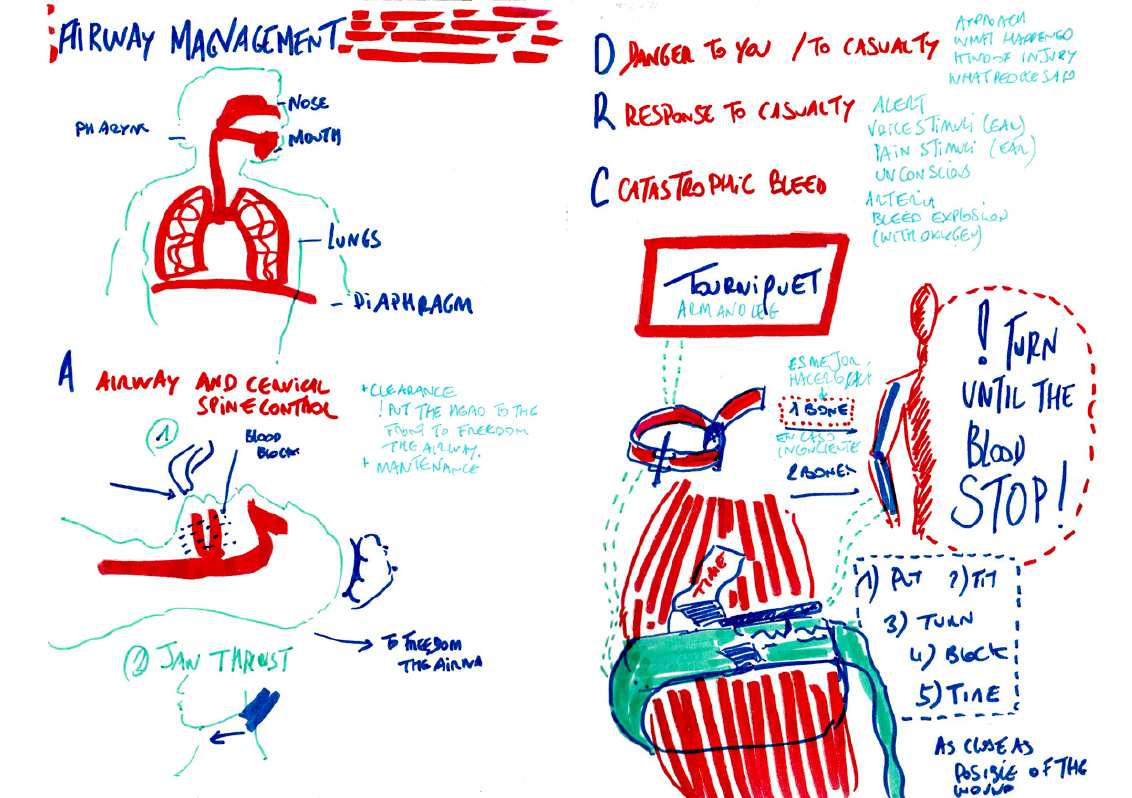 AIRWAY MAGNAGEMENT
NOSE
PHARYNX
MOUTH
LUNGS
DIAPHRAGM
A AIRWAY AND CERVICAL
SPINE CONTROL
+ CLEARANCE
! PUT THE HEAD TO THE
FRONT TO FREEDOM
THE AIRWAY.
+ MANTENANCE
1
BLOOD
BLOCK
TO FREEDOM
THE AIRWA
2 JAN THRUST
D DANGER TO YOU / TO CASUALTY
APPROACH
WHAT HAPPENED
KIND OF INJURY
WHAT PEOPLE SAID
R RESPONSE TO CASUALTY
ALERT
VOICE STIMULI (EAR)
PAIN STIMULI (EAR)
UNCONSCIOS
C CATASTROPHIC BLEED
ARTERIA
BLEED EXPLOSION
(WITH OXYGEN)
TOURNIQUET
ARM AND LEG
ES MEJOR
HACERLO
1 BONE
EN CASO
INCONCIENTE
2 BONES
! TURN
UNTIL THE
BLOOD
STOP!
TIME
1) PUT 2) TIT
3) TURN
4) BLOCK
5) TIME
AS CLOSE AS
POSIBLE OF THE
WOUND